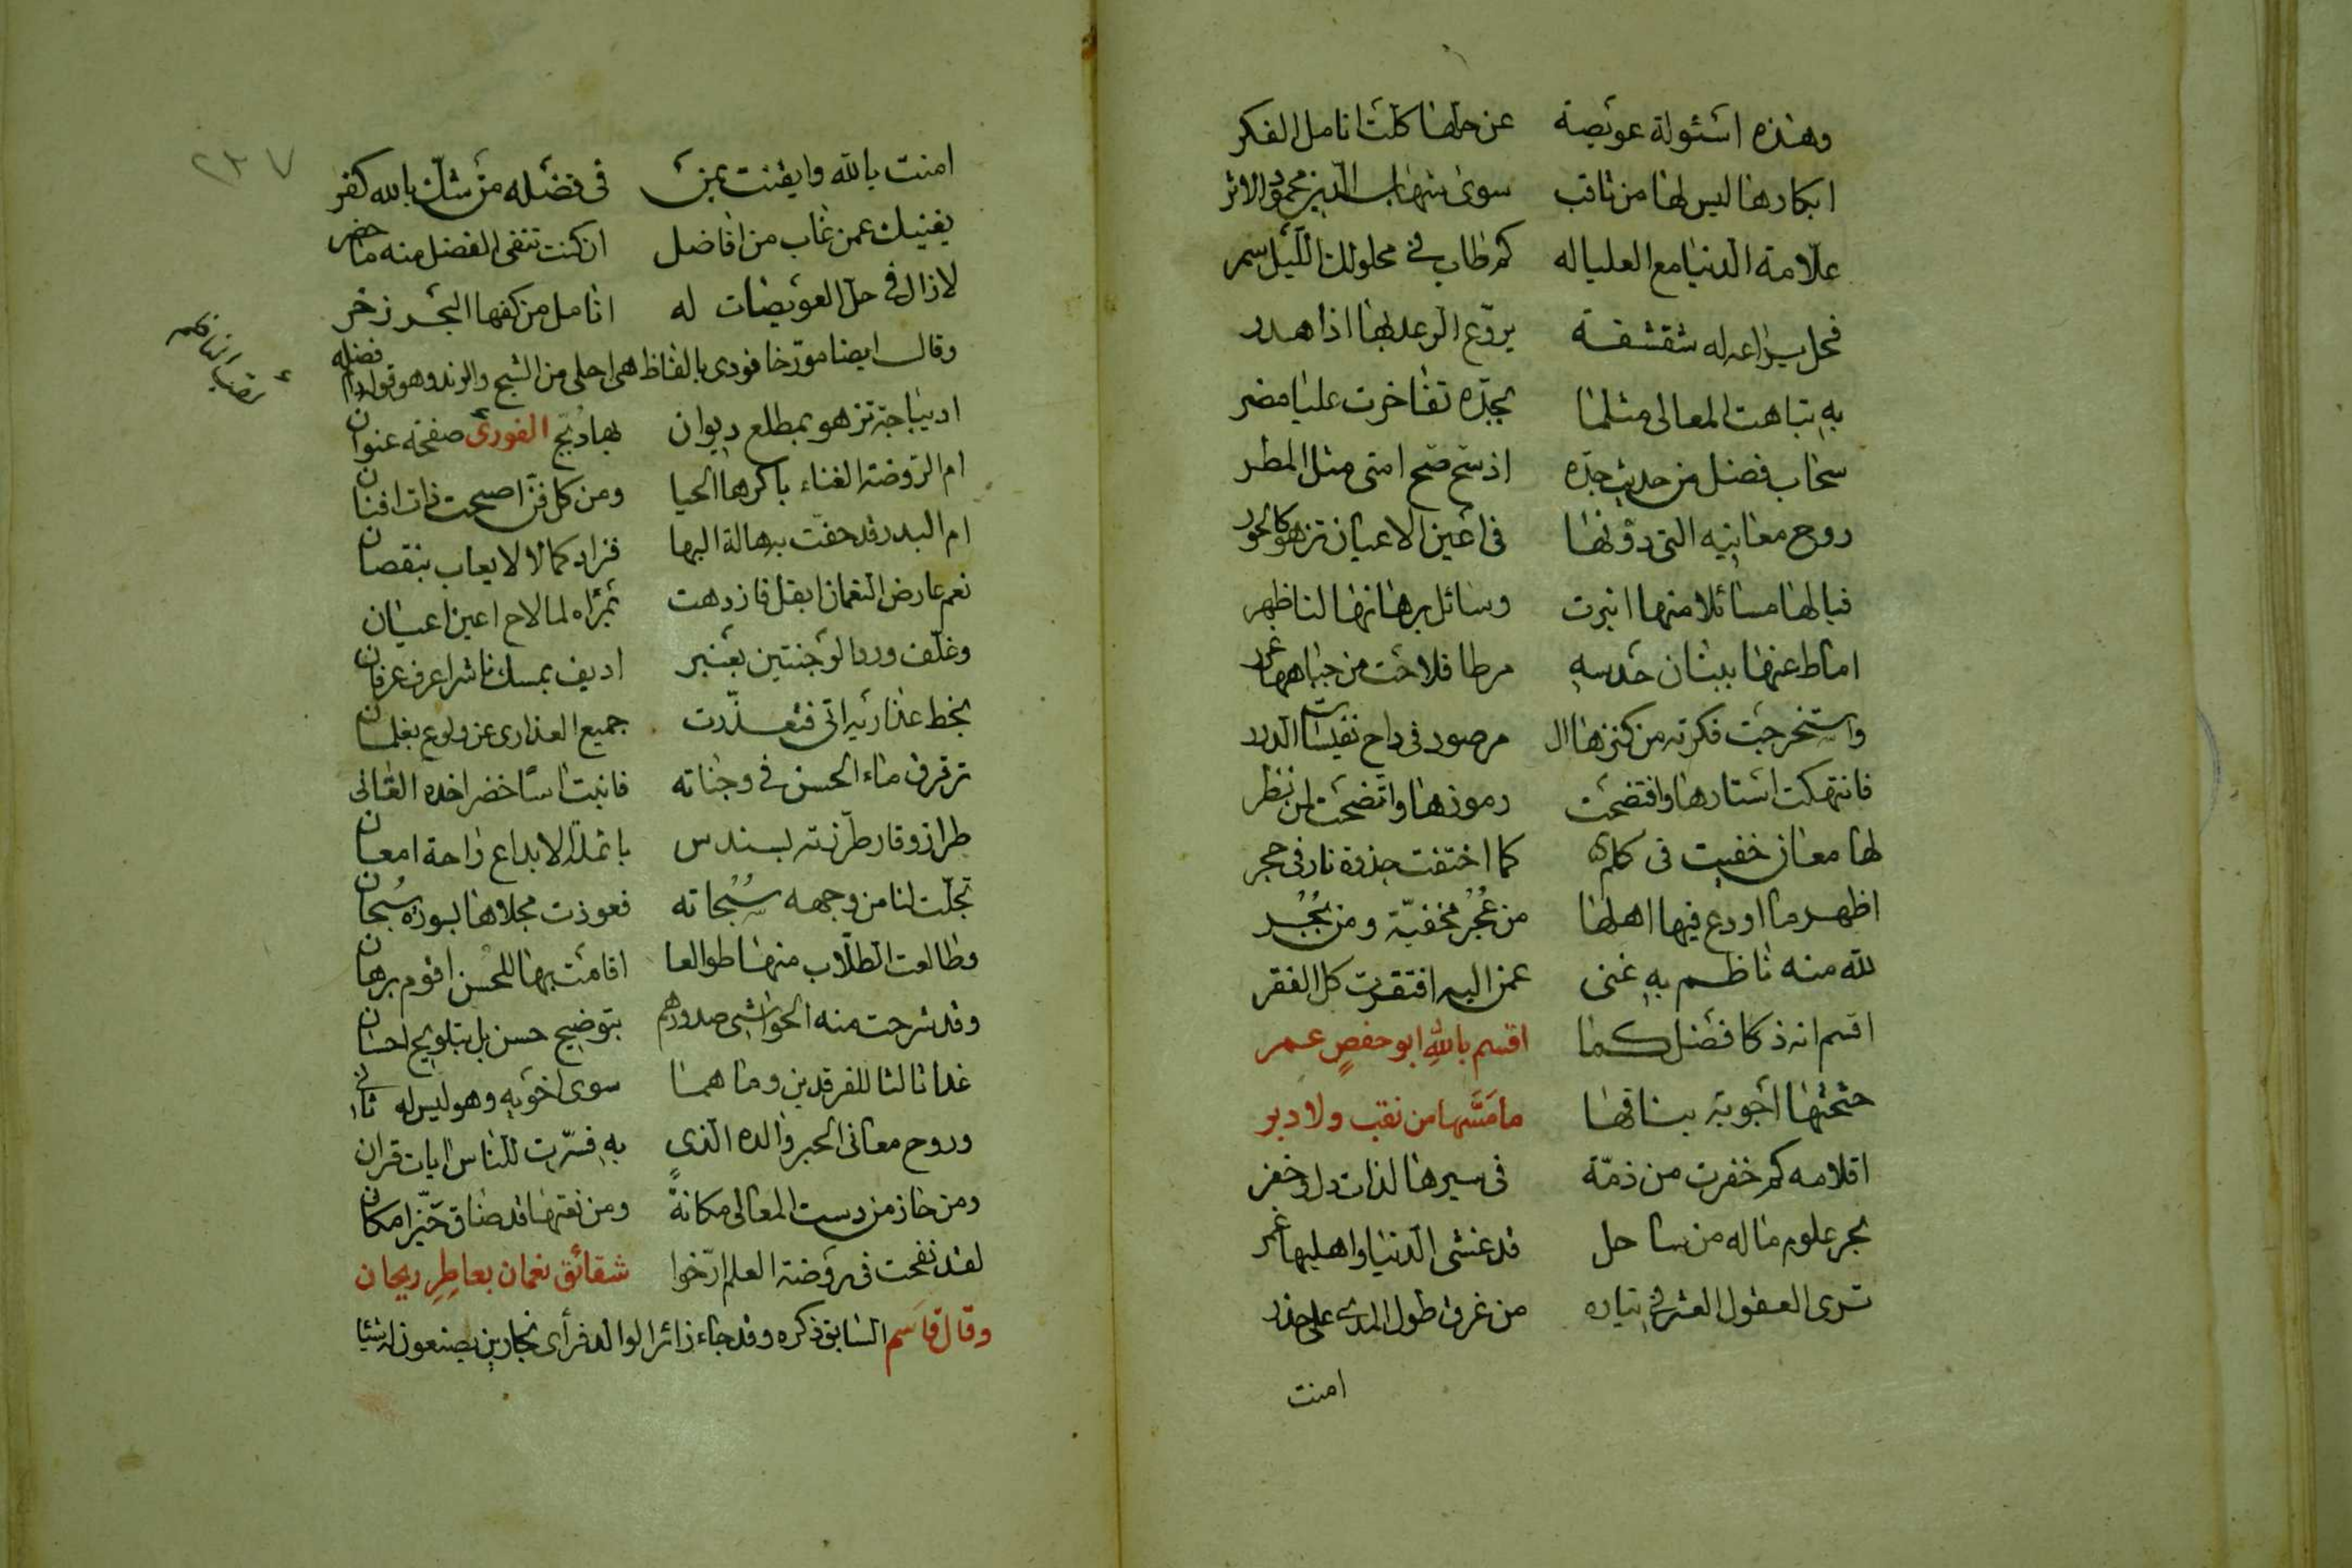 وهذه اسئولة عويصة عن حلها كلت انامل الفكر
ابكارها ليس لها من ثاقب سوى شهاب الدين محمود الاثر
علامة الدنيا مع العليا له كم طاب في محلولك الليل سمر
فحل يراعه له شقشقة يروّع الرعد بها اذا هدر
به تباهت المعالى مثلما بجدّه تفاخرت عليا مضر
سحاب فضل من حديث جدّه اذ سح صح امتى مثل المطر
روح معانيه التى دوّنها فى اعين الاعيان تزهو كالحور
فيا لها مسائلا منها انبرت وسائل برهانها لنا ظهر
اماط عنها ببنان حدسه مرطا فلاحت من جباهها غرر
واستخرجت فكرته من كنزها ال مرصود فى داح نفيسات الدرر
فانتهكت استارها وافتضحت رموزها واتضحت لمن نظر
لها معان خفيت فى كلم كما اختفت جذوة نار فى حجر
اظهر ما اودع فيها اهلها من عُجُر مخفيّة ومن بُجُر
لله منه ناظم به غنى عمن اليه افتقرت كل الفقر
اقسم انه ذكا فضل كما اقسم بالله ابو حفصٍ عمر
حثحثها اجوبة بناقها ما مسّها من نقب ولا دبر
اقلامه كم خفرت من ذمّة فى سيرها لذات دل وخفر
بحر علوم ما له من ساحل قد غشى الدنيا واهليها غمر
ترى العقول العشر فى تياره من غرق طول المدى على حذر
امنت
٢٣٧
امنت بالله وايقنت بمن فى فضله من شك بالله كفر
يغنيك عمن غاب من افاضل ان كنت تنفى الفضل منه ما حضر
لا زال فى حل العويضات له انامل من كفها البحر زخر
وقال ايضا مورّخا فودى بالفاظ هى احلى من الشيح والرند وهو قوله دام فضله
اديباجة تزهو بمطلع ديوان بها دبّج الفورى صفحة عنوان
ام الروضة الغناء باكرها الحيا ومن كل فنّ اصبحت ذات افنان
ام البدر قد حفّت به هالة البها فزاد كمالا لا يعاب بنقصان
نعم عارض النعمان ابقل فازدهت بمرآه لما لاح اعين اعيان
وغلّف ورد الوجنتين بعنبر اديف بمسك ناشرا عرف عرفان
بخط عذاريه اتى فتعذّرت جميع العذارى عن ولوع بغلمان
ترقرق ماء الحسن في وجناته فانبت اسًا خضرا خده القانى
طراز وقار طرّزته بسندس بانملة الابداع راحة امعان
تجلّت لنا من وجهه سُبُحاته فعوذت مجلاها بسورة سُبحان
وطالعت الطلّاب منها طوالعا اقامت بها للحسن اقوم برهان
وقد شرحت منه الحواشى صدورهم بتوضيح حسن بل بتلويح احسان
غدا ثالثا للفرقدين وما هما سوى اخويه وهو ليس له ثانى
وروح معانى الحبر والده الذى به فسّرت للناس ايات قران
ومن حاز من دست المعالى مكانةً ومن نعتها قد ضاق حيّز امكان
لقد نفحت فى روضة العلم ارّخوا شقائق نعمان بعاطِرِ ريحان
وقال قاسم السابق ذكره وقد جاء زائرا لوالد فرأى نجارين يصنعون له شيئا